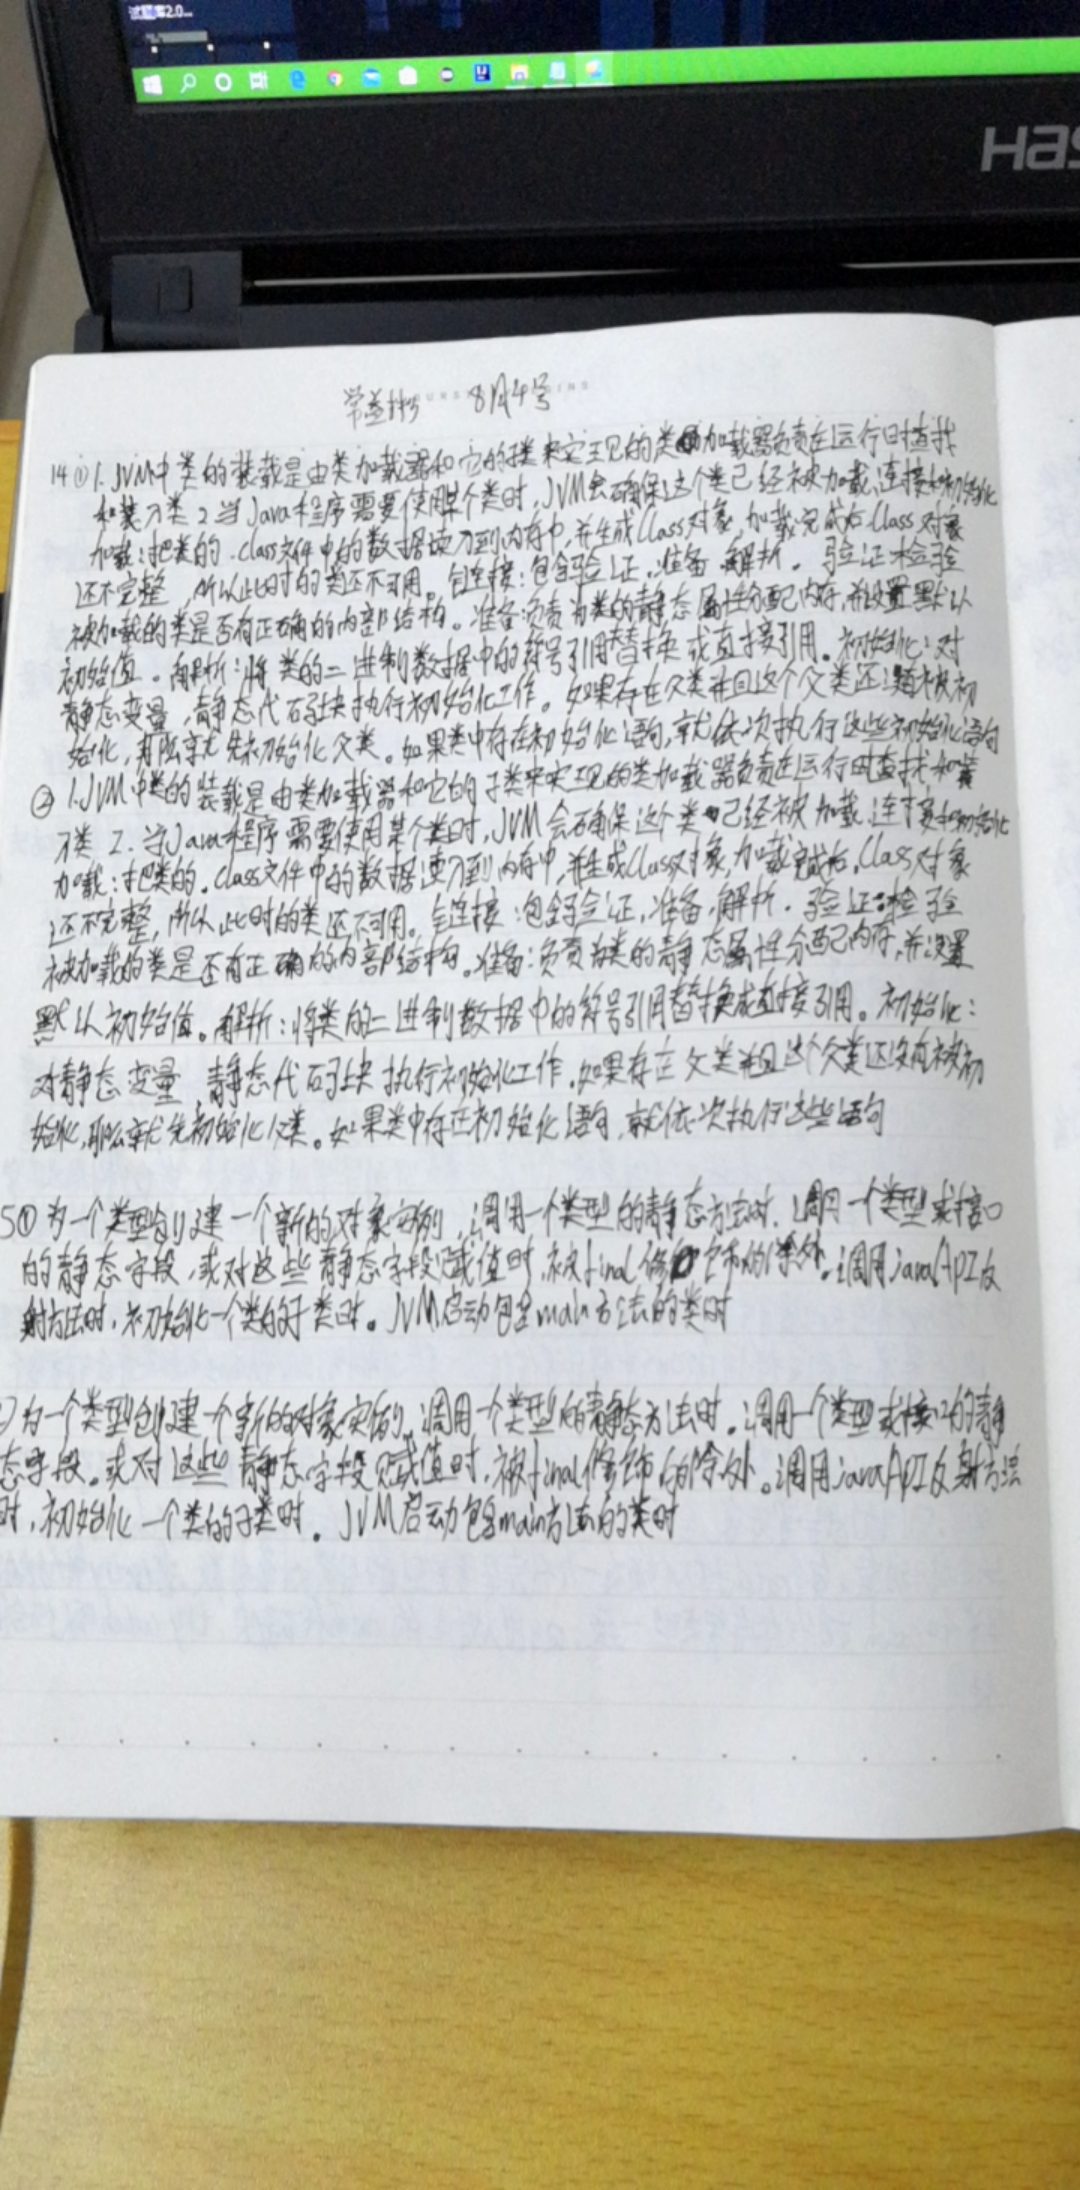 试题库2.0...
Has
8月4号
14①1.JVM中类的装载是由类加载器和它的子类来实现的类加载器负责在运行时查找
和装入类2.当Java程序需要使用某个类时,JVM会确保这个类已经被加载,连接和初始化
加载:把类的.class文件中的数据读入到内存中,并生成Class对象,加载完成后Class对象
还不完整,所以此时的类还不可用。连接:包含验证,准备,解析。验证:检验
被加载的类是否有正确的内部结构。准备:负责为类的静态属性分配内存,并设置默认
初始值。解析:将类的二进制数据中的符号引用替换成直接引用。初始化:对
静态变量,静态代码块执行初始化工作。如果存在父类并且这个父类还没被初
始化,那么就先初始化父类。如果类中存在初始化语句,就依次执行这些初始化语句
②1.JVM中类的装载是由类加载器和它的子类来实现的类加载器负责在运行时查找和装
入类 2.当Java程序需要使用某个类时,JVM会确保这个类已经被加载.连接和初始化
加载:把类的.class文件中的数据读入到内存中,并生成Class对象,加载完成后,Class对象
还不完整,所以此时的类还不可用。连接:包含验证,准备,解析.验证:检验
被加载的类是否有正确的内部结构。准备:负责为类的静态属性分配内存,并设置
默认初始值。解析:将类的二进制数据中的符号引用替换成直接引用。初始化:
对静态变量,静态代码块执行初始化工作.如果存在父类并且这个父类还没有被初
始化,那么就先初始化父类。如果类中存在初始化语句,就依次执行这些语句
5①为一个类型创建一个新的对象实例,调用一个类型的静态方法时.调用一个类型或接口
的静态字段,或对这些静态字段赋值时,被final修饰的除外。调用javaAPI反
射方法时,初始化一个类的子类时。JVM启动包含main方法的类时
为一个类型创建一个新的对象实例,调用一个类型的静态方法时.调用一个类型或接口的静
态字段。或对这些静态字段赋值时,被final修饰的除外。调用javaAPI反射方法
时,初始化一个类的子类时。JVM启动包含main方法的类时